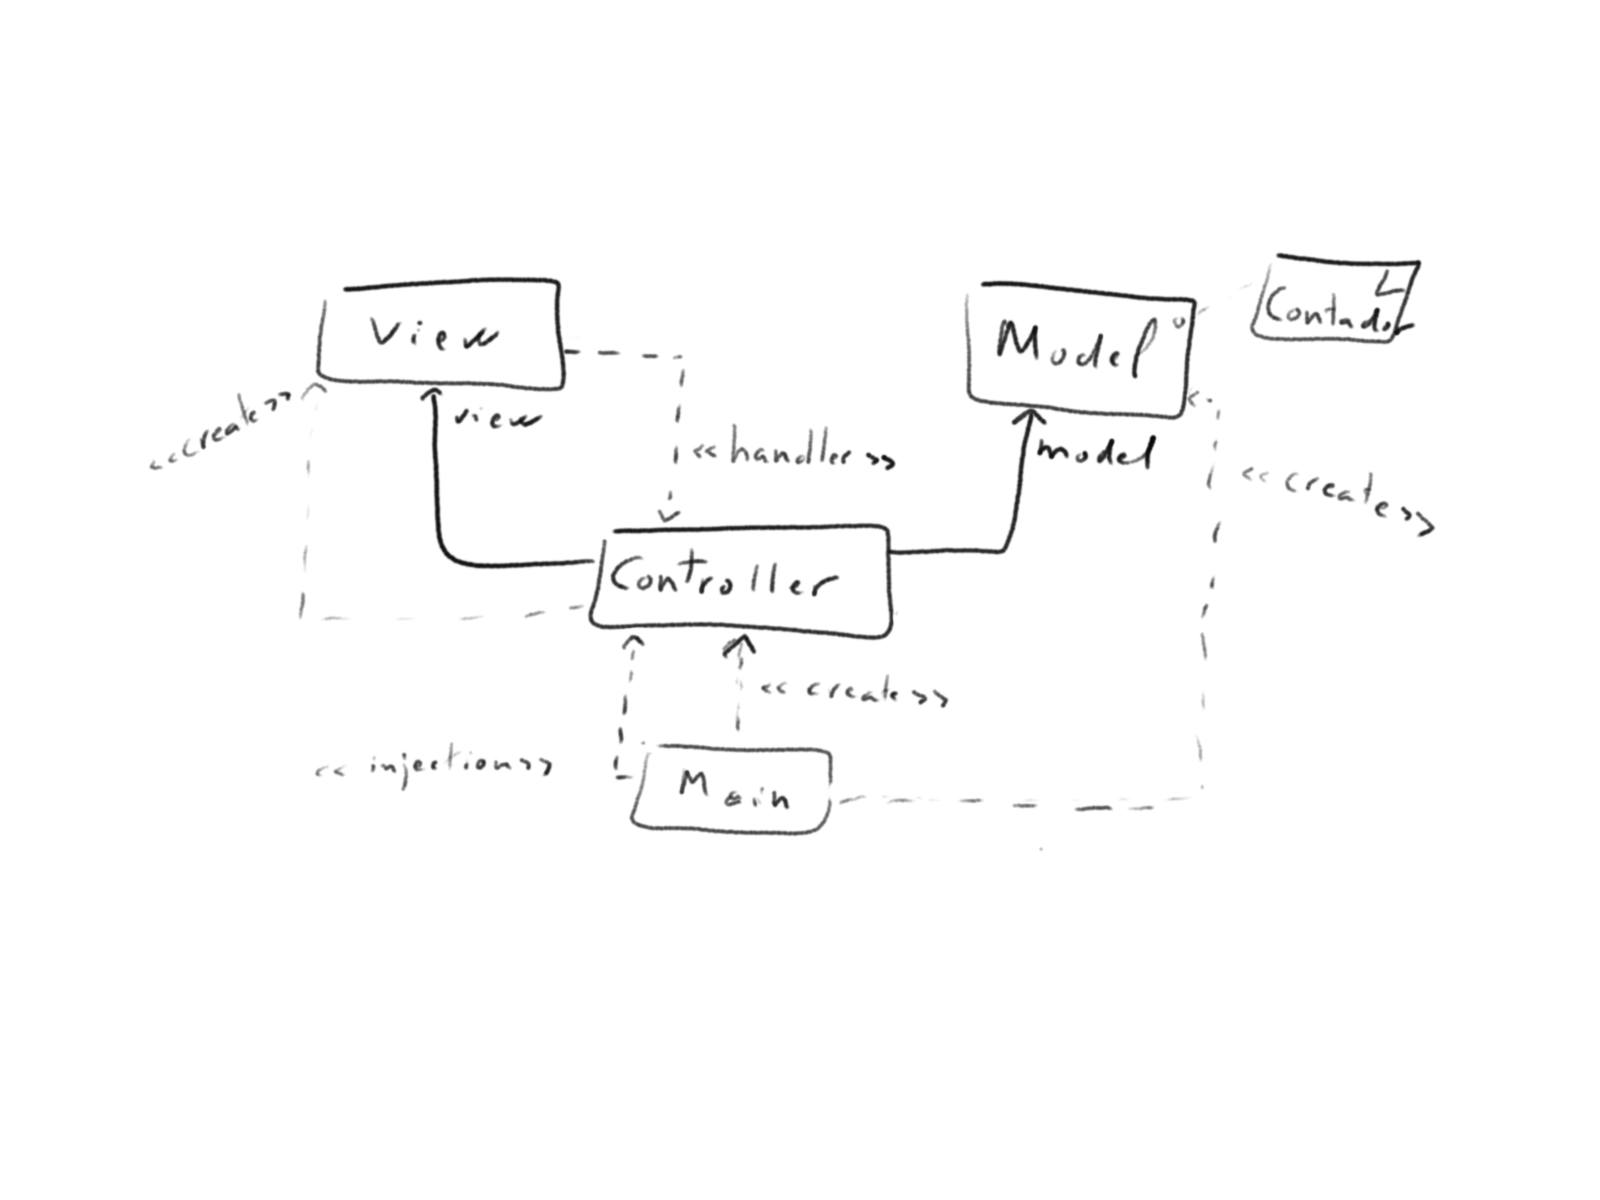 View
Model
Contador
<<create>>
view
<<handler>>
model
<<create>>
Controller
<<create>>
<<injection>>
Main